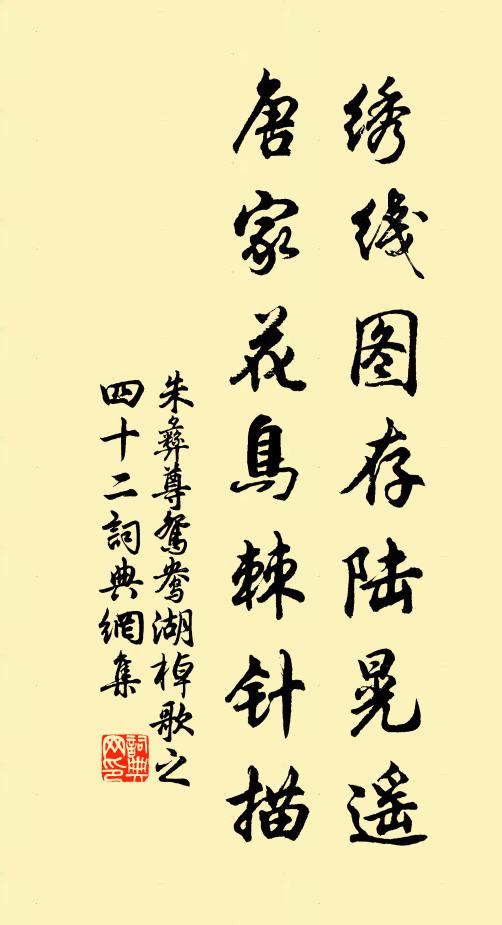 绣线图存陆晃遥
唐家花鸟棘针描
朱彝尊鸳鸯湖棹歌之
四十二詞典網集
詞典網印